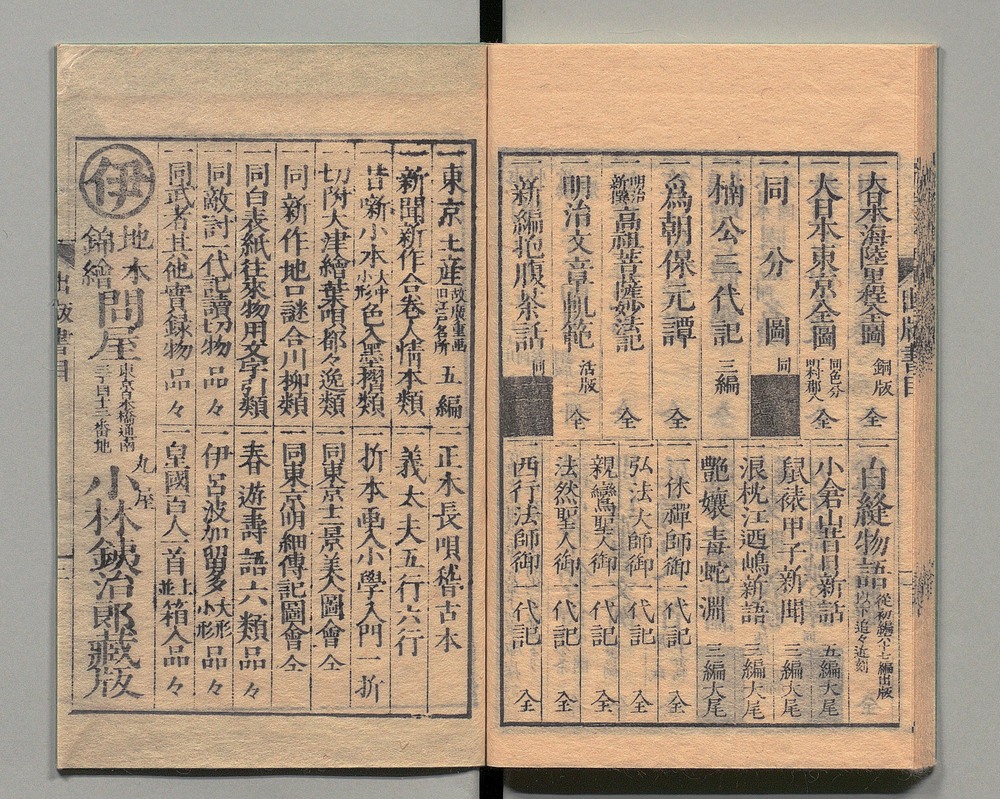 一大日本海陸里程全圖 銅版 全
一大日本東京全圖 同色分 町村郡入 全
一同 分 圖 同
一楠公三代記 三編
一爲朝保元譚 全
一明治新撰高祖菩薩妙法記 全
一明治文章軌範 活版 全
一新編抱腹茶話 同
一白縫物語 從初編六十七編出版 以下追々近刻
一小倉山昔日新話 五編大尾
一鼠𧝒甲子新聞 三編大尾
一浪枕江迺嶋新語 三編大尾
一艶孃毒蛇淵 三編大尾
一一休禪師御一代記 全
一弘法大師御一代記 全
一親鸞聖人御一代記 全
一法然聖人御一代記 全
一西行法師御一代記 全
出版書目
一東京土産 故廣重画 旧江戸名所 五編
一新聞新作合卷人情本類
一昔噺小本 大中小形 色入墨摺類
一切附大津繪葉唄都々逸類
一同新作地口謎合川柳類
一同白表紙往來物用文字引類
一同敵討一代記讀切物品々
一同武者其他實録物品々
一正本長唄稽古本
一義太夫五行六行
一折本画入小學入門一折
一同東京十二景美人圖會 全
一同東京明細傳記圖會 全
一春遊壽語六類品々
一伊呂波加留多 大形 小形 品々
一皇國百人一首 上並 箱入品々
伊
地本
錦繪
問屋
東京京橋通南
三丁目十三番地
丸屋
小林鉄治郎藏版
出版書目